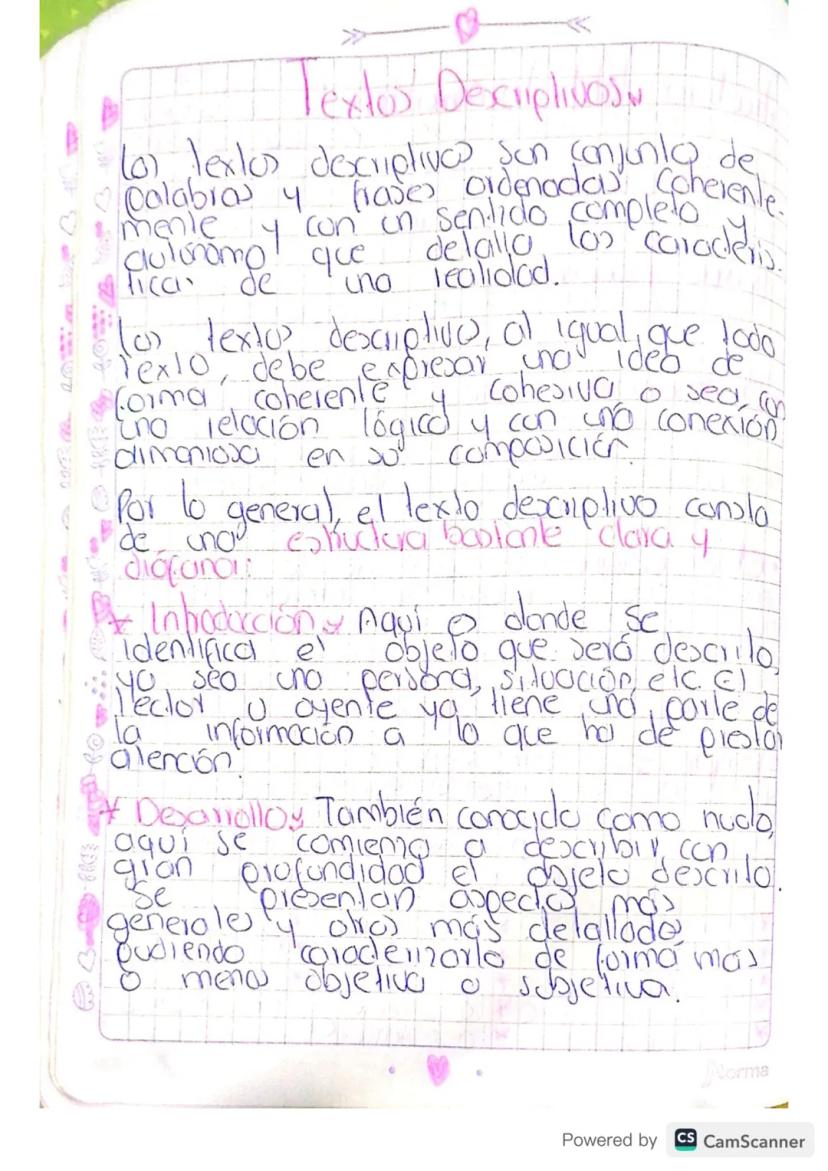 Textos Descriptivos
Los textos descriptivos son conjunto de
palabras y frases ordenadas coherente-
mente y con un sentido completo y
autónomo que detalla las caracterís-
ticas de una realidad.
Los textos descriptivo, al igual que todo
texto, debe expresar una idea de
forma coherente y cohesiva o sea, con
una relación lógica y con una conexión
armoniosa en su composición.
Por lo general, el texto descriptivo consta
de una estructura bastante clara y
diáfana:
* Introducción Aquí es donde se
identifica el objeto que será descrito,
ya sea una persona, situación, etc. El
lector u oyente ya tiene una parte de
la información a lo que ha de prestar
atención.
* Desarrollo También conocido como nudo,
aquí se comienza a describir con
gran profundidad el objeto descrito.
Se presentan aspectos más
generales y otros más detallados
pudiendo caracterizarlo de forma más
o menos objetiva o subjetiva.
Norma
Powered by CS CamScanner